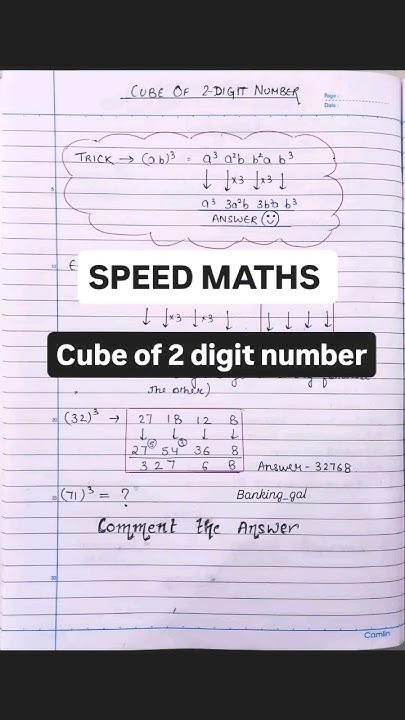 CUBE OF 2-DIGIT NUMBER
Page:
Date:
TRICK → (ab)³ = a³ a²b b²a b³
↓ ↓×3 ↓×3 ↓
a³ 3a²b 3b²a b³
ANSWER ☺
SPEED MATHS
↓ ↓×3 ↓×3 ↓ ↓ ↓ ↓ ↓
Cube of 2 digit number
the other)
(32)³ → 27 18 12 8
↓ ↓ ↓ ↓
27⑤ 54③ 36 8
3 2 7 6 8 Answer - 32768
(71)³ = ? Banking_gal
Comment the Answer
Camlin